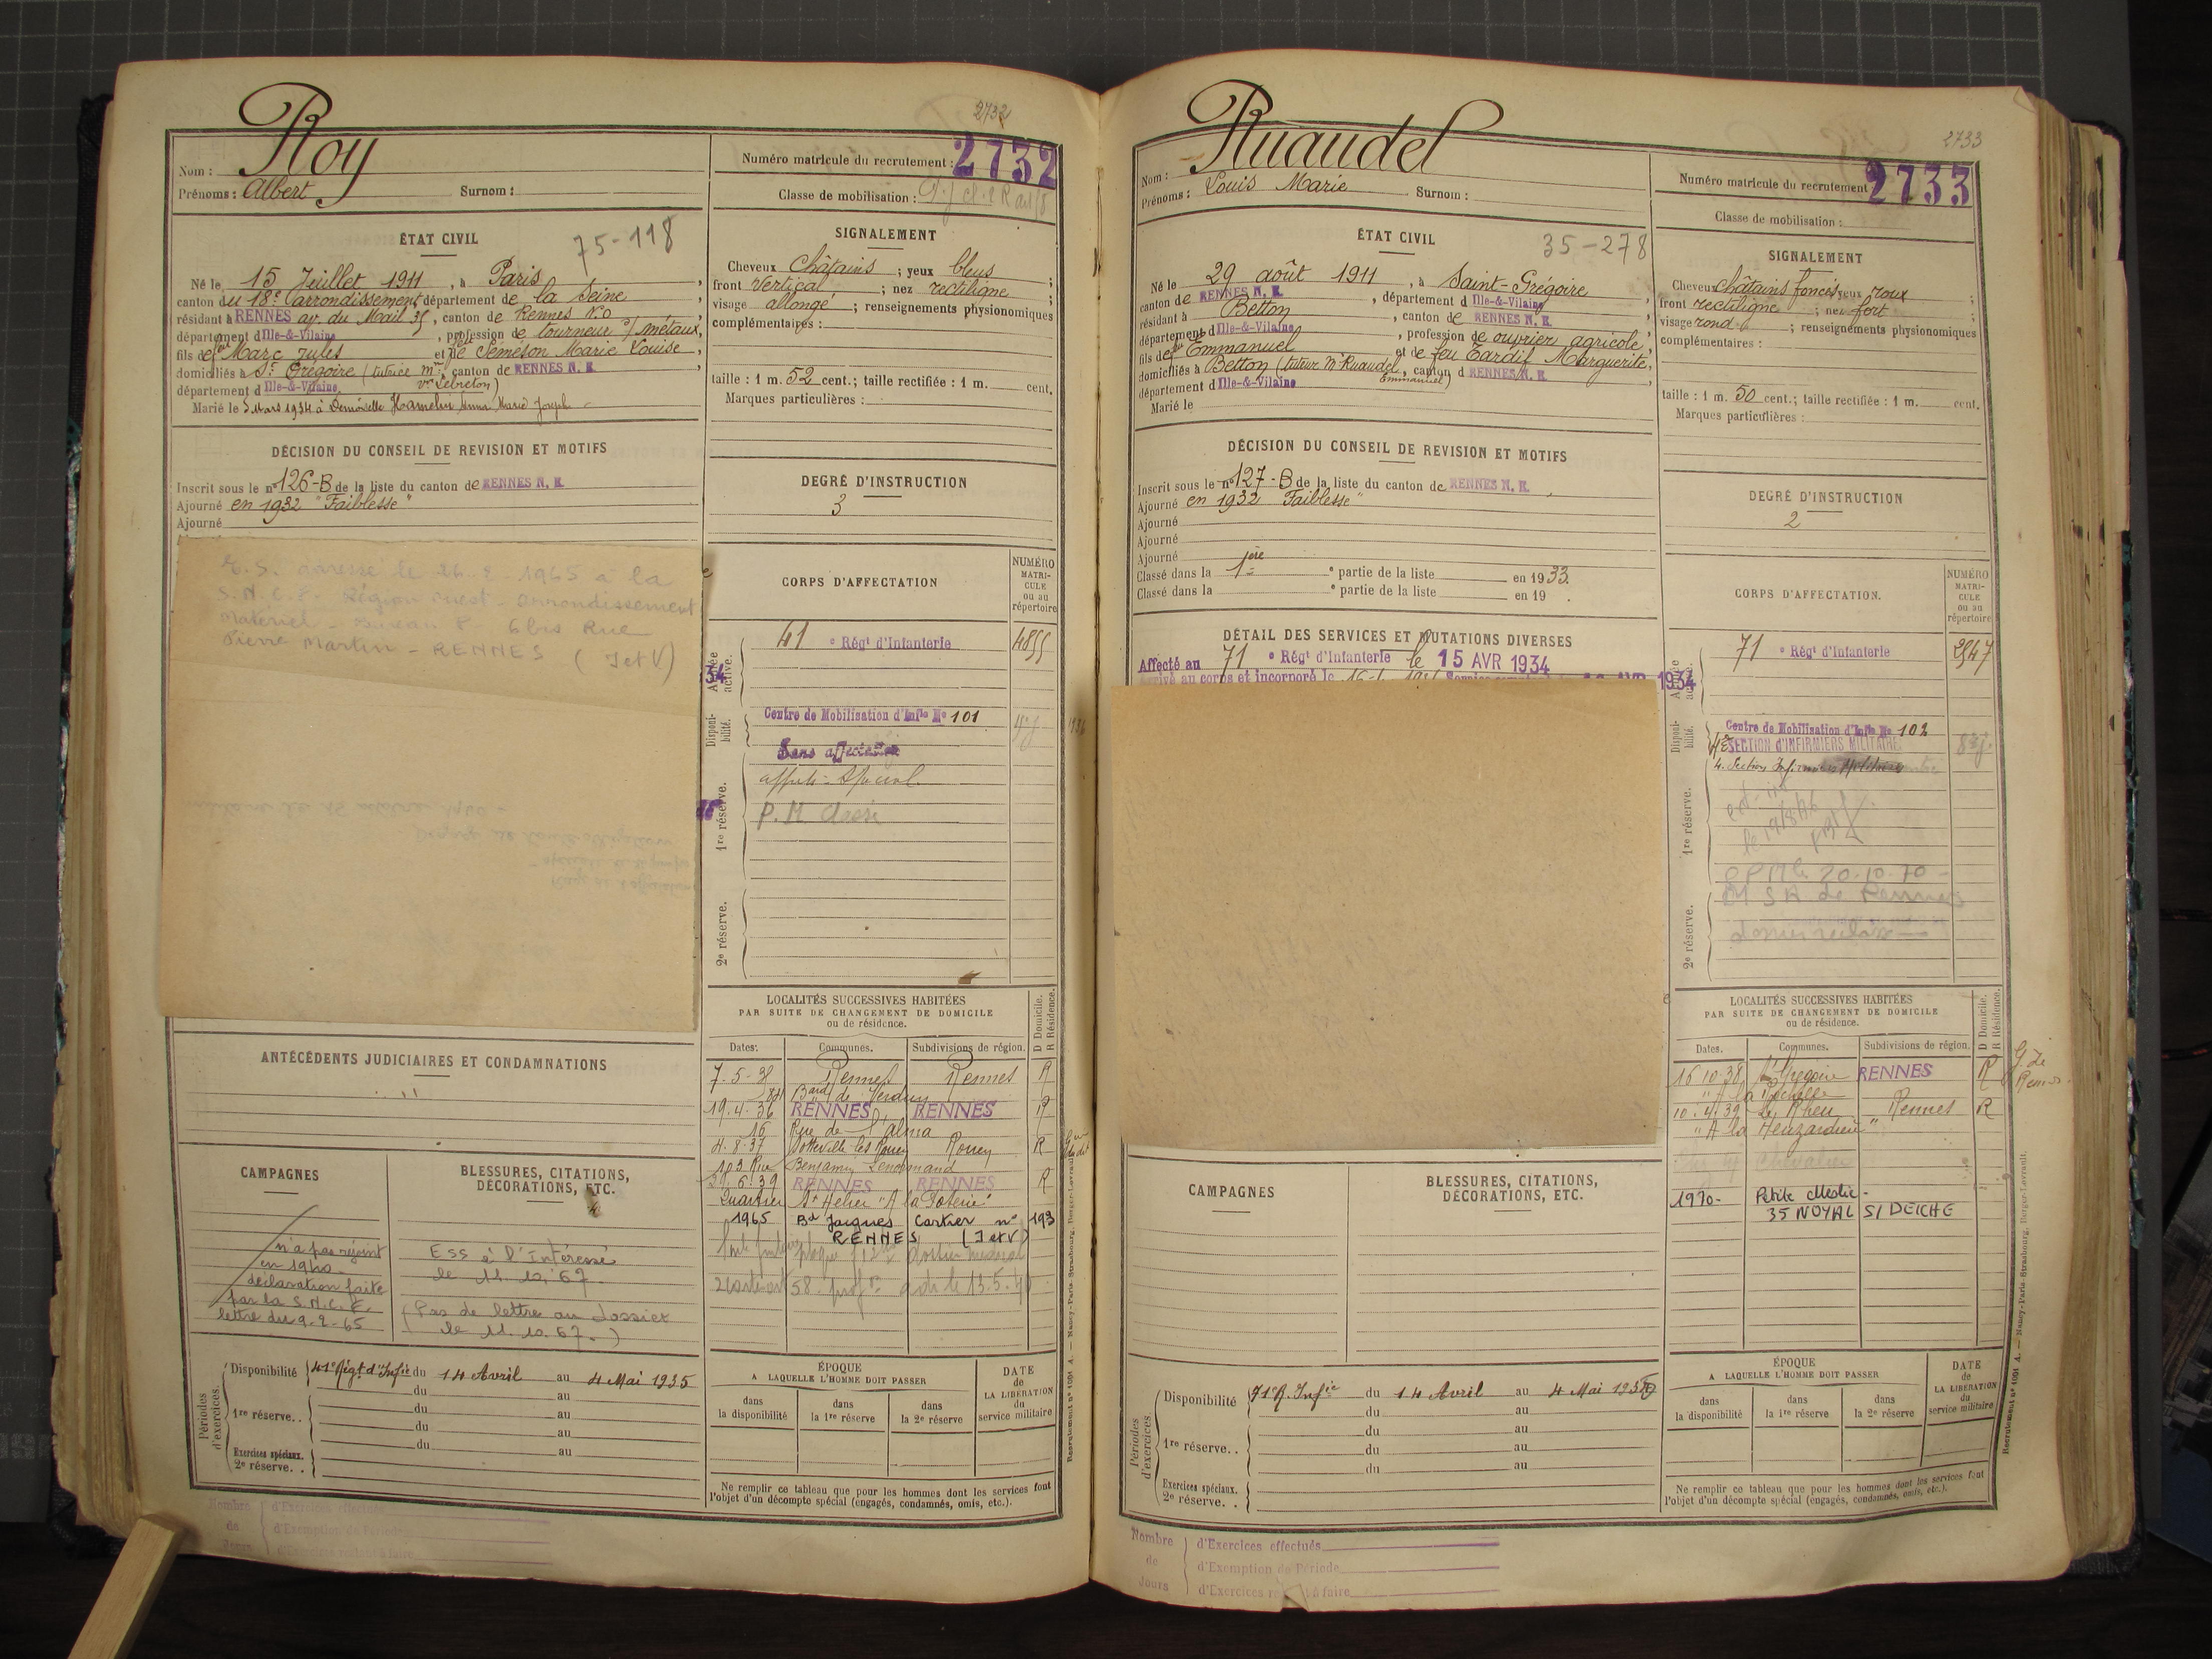 2732
Roy
Nom :
Prénoms : Albert Surnom :
Numéro matricule du recrutement : 2732
Classe de mobilisation :
ÉTAT CIVIL 75-118
Né le 15 Juillet 1911, à Paris,
canton du 18e arrondissement département de la Seine,
résidant à RENNES av. du Mail 35, canton de Rennes N.O,
département d'Ille-&-Vilaine, profession de tourneur s/ métaux,
fils de Marc Jules et de Semeson Marie Louise,
domiciliés à St Grégoire (tutrice Mme, canton de RENNES N. E.
vve Lebreton)
département d'Ille-&-Vilaine,
Marié le 5 Mars 1934 à Demoiselle Hamelin Anna Marie Joseph
SIGNALEMENT
Cheveux châtains ; yeux bleus ;
front vertical ; nez rectiligne ;
visage allongé ; renseignements physionomiques
complémentaires :
taille : 1 m. 52 cent.; taille rectifiée : 1 m. cent.
Marques particulières :
DÉCISION DU CONSEIL DE REVISION ET MOTIFS
Inscrit sous le n° 126-B de la liste du canton de RENNES N. E.
Ajourné en 1932 "Faiblesse"
Ajourné
DEGRÉ D'INSTRUCTION
3
adressé le 26.2.1965 à la
S.N.C.F. Région Ouest - arrondissement
Matériel - Bureau P. 6 bis Rue
Pierre Martin - RENNES (I et V)
CORPS D'AFFECTATION
NUMÉRO MATRI-CULE ou au répertoire
Armée active.
41e Régt d'Infanterie 4855
34
Disponi-bilité.
Centre de Mobilisation d'Infie No 101
Sans affectation
1re réserve.
affecté spécial
P. M
2e réserve.
LOCALITÉS SUCCESSIVES HABITÉES
PAR SUITE DE CHANGEMENT DE DOMICILE
ou de résidence.
D Domicile. R Résidence.
Dates. Communes. Subdivisions de région.
7-5-35 Rennes Rennes R
Bard de Verdun
19.4.36 RENNES RENNES R
16 Rue de l'Alma
4.8.37 Sotteville les Rouen Rouen R
103 Rue Benjamin Lenormand
6.39 RENNES RENNES R
Quartier St Helier "A la Poterie"
1965 Bd Jacques Cartier n° 193
RENNES (I et V)
ANTÉCÉDENTS JUDICIAIRES ET CONDAMNATIONS
CAMPAGNES
n'a pas rejoint
en 1940
déclaration faite
par la S.N.C.F.
lettre du 9-2-65
BLESSURES, CITATIONS,
DÉCORATIONS, ETC.
ESS à l'Intéressé
le 11.10.67.
(Pas de lettre au dossier
le 11.10.67.)
Périodes d'exercices.
Disponibilité 41e Régt d'Infie du 14 Avril au 4 Mai 1935
du au
1re réserve. . du au
du au
du au
Exercices spéciaux.
2e réserve. .
ÉPOQUE
A LAQUELLE L'HOMME DOIT PASSER
dans la disponibilité
dans la 1re réserve
dans la 2e réserve
DATE de LA LIBÉRATION du service militaire
Ne remplir ce tableau que pour les hommes dont les services font
l'objet d'un décompte spécial (engagés, condamnés, omis, etc.).
Nombre de Jours
d'Exercices effectués
d'Exemption de Période
d'Exercices restant à faire
2733
Ruaudel
Nom :
Prénoms : Louis Marie Surnom :
Numéro matricule du recrutement 2733
Classe de mobilisation :
ÉTAT CIVIL 35-278
Né le 29 août 1911, à Saint-Grégoire,
canton de RENNES N. E., département d'Ille-&-Vilaine,
résidant à Betton, canton de RENNES N. E.
département d'Ille-&-Vilaine, profession de ouvrier agricole,
fils de Emmanuel et de feu Tardif Marguerite,
domiciliés à Betton (tuteur Mr Ruaudel, canton d RENNES N. E.
Emmanuel)
département d'Ille-&-Vilaine
Marié le
SIGNALEMENT
Cheveux châtains foncés yeux roux ;
front rectiligne ; nez fort ;
visage rond ; renseignements physionomiques
complémentaires :
taille : 1 m. 50 cent.; taille rectifiée : 1 m. cent.
Marques particulières :
DÉCISION DU CONSEIL DE REVISION ET MOTIFS
Inscrit sous le n° 127-B de la liste du canton de RENNES N. E.
Ajourné en 1932 "Faiblesse"
Ajourné
Ajourné
Ajourné
Classé dans la 1ère e partie de la liste en 1933.
Classé dans la e partie de la liste en 19 .
DEGRÉ D'INSTRUCTION
2
DÉTAIL DES SERVICES ET MUTATIONS DIVERSES
Affecté au 71e Régt d'Infanterie le 15 AVR 1934
CORPS D'AFFECTATION.
NUMÉRO MATRI-CULE ou au répertoire
Armée active.
71e Régt d'Infanterie 2947
Disponi-bilité.
Centre de Mobilisation d'Infie No 102
4e SECTION D'INFIRMIERS MILITAIRES
4. Section Infirmiers Militaires
1re réserve.
20-10-70
S R de Rennes
2e réserve.
LOCALITÉS SUCCESSIVES HABITÉES
PAR SUITE DE CHANGEMENT DE DOMICILE
ou de résidence.
D Domicile. R Résidence.
Dates. Communes. Subdivisions de région.
16 10.38 St Grégoire RENNES R
"A la Rochelle
10.4.39 Le Rheu Rennes R
"A la Heuzardière"
1970- Petite
35 NOYAL S/ SEICHE
CAMPAGNES
BLESSURES, CITATIONS,
DÉCORATIONS, ETC.
Périodes d'exercices.
Disponibilité 71e R. Infie du 14 Avril au 4 Mai 1935
du au
1re réserve. . du au
du au
du au
Exercices spéciaux.
2e réserve. .
ÉPOQUE
A LAQUELLE L'HOMME DOIT PASSER
dans la disponibilité
dans la 1re réserve
dans la 2e réserve
DATE de LA LIBÉRATION du service militaire
Ne remplir ce tableau que pour les hommes dont les services font
l'objet d'un décompte spécial (engagés, condamnés, omis, etc.).
Recrutement n° 1091 A. — Nancy-Paris-Strasbourg, Berger-Levrault.
Nombre de Jours
d'Exercices effectués
d'Exemption de Période
d'Exercices à faire